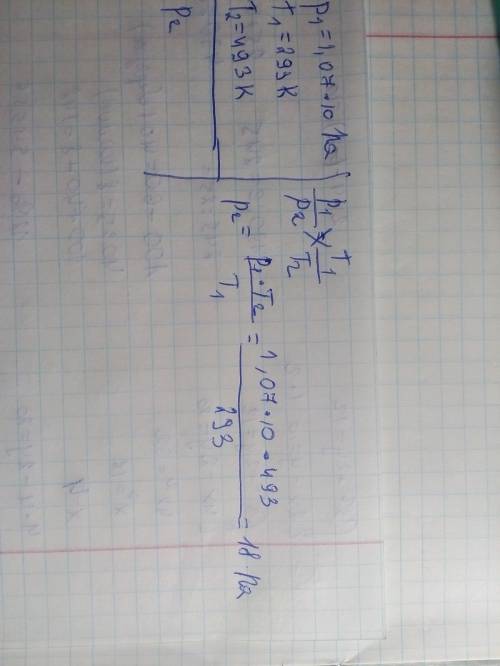 p1 = 1,07 · 10 Па
t1 = 293 К
T2 = 493 К
p2
p1/p2 = T1/T2
p2 = p1 · T2/T1 = 1,07 · 10 · 493/293 = 18 · Па